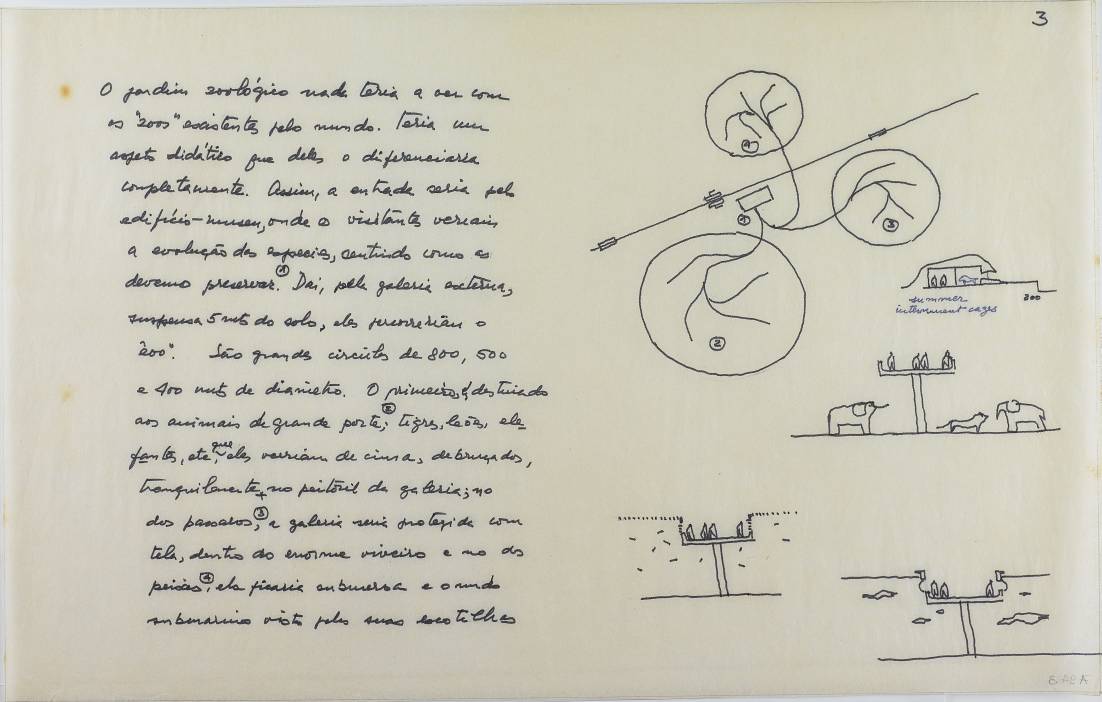 3
O jardim zoológico nada teria a ver com
os "zoos" existentes pelo mundo. Teria um
aspeto didático que deles o diferenciaria
completamente. Assim, a entrada seria pelo
edifício-museu, onde os visitantes veriam
a evolução das especies, sentindo como as
devemo preservar. ① Daí, pela galeria externa,
suspensa 5 mts do solo, eles percorreriam o
"zoo". São grandes circulos de 800, 500
e 400 mts de diametro. O primeiro, é destinado
aos animais de grande porte, ② tigres, leões, ele-
fantes, etc, que eles veriam de cima, debruçados,
tranquilamente, no peitoril da galeria; no
dos passaros, ③ a galeria seria protegida com
tela, dentro do enorme viveiro e no dos
peixes, ④ ela ficaria submersa e o mundo
submarino visto pelas suas escotilhas
4
1
3
2
summer
internment cages
zoo